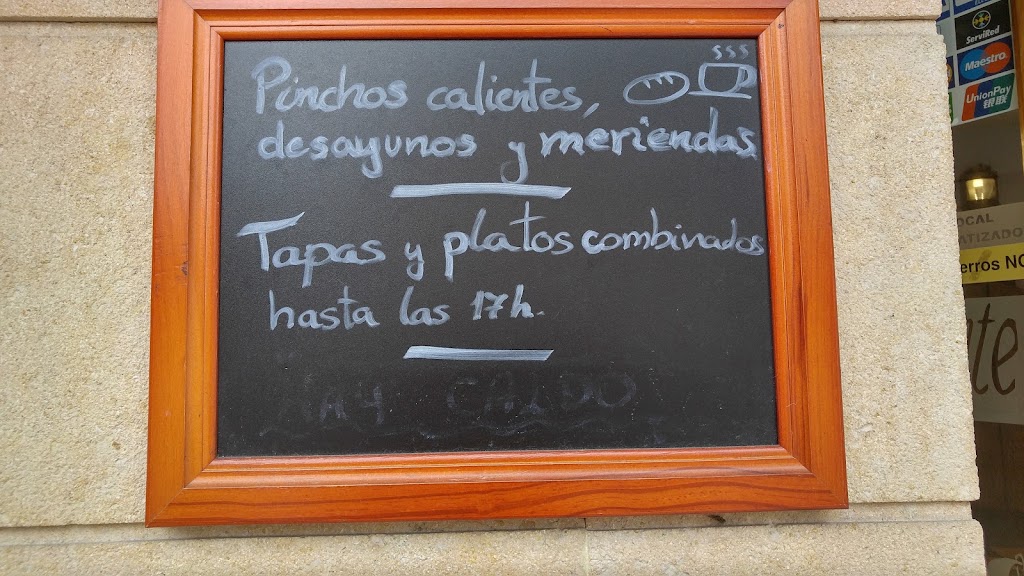 Pinchos calientes,
desayunos y meriendas
Tapas y platos combinados
hasta las 17h.
HAY CALDO
ServiRed
Maestro
UnionPay
银联
OCAL
ATIZADO
erros NO
nte